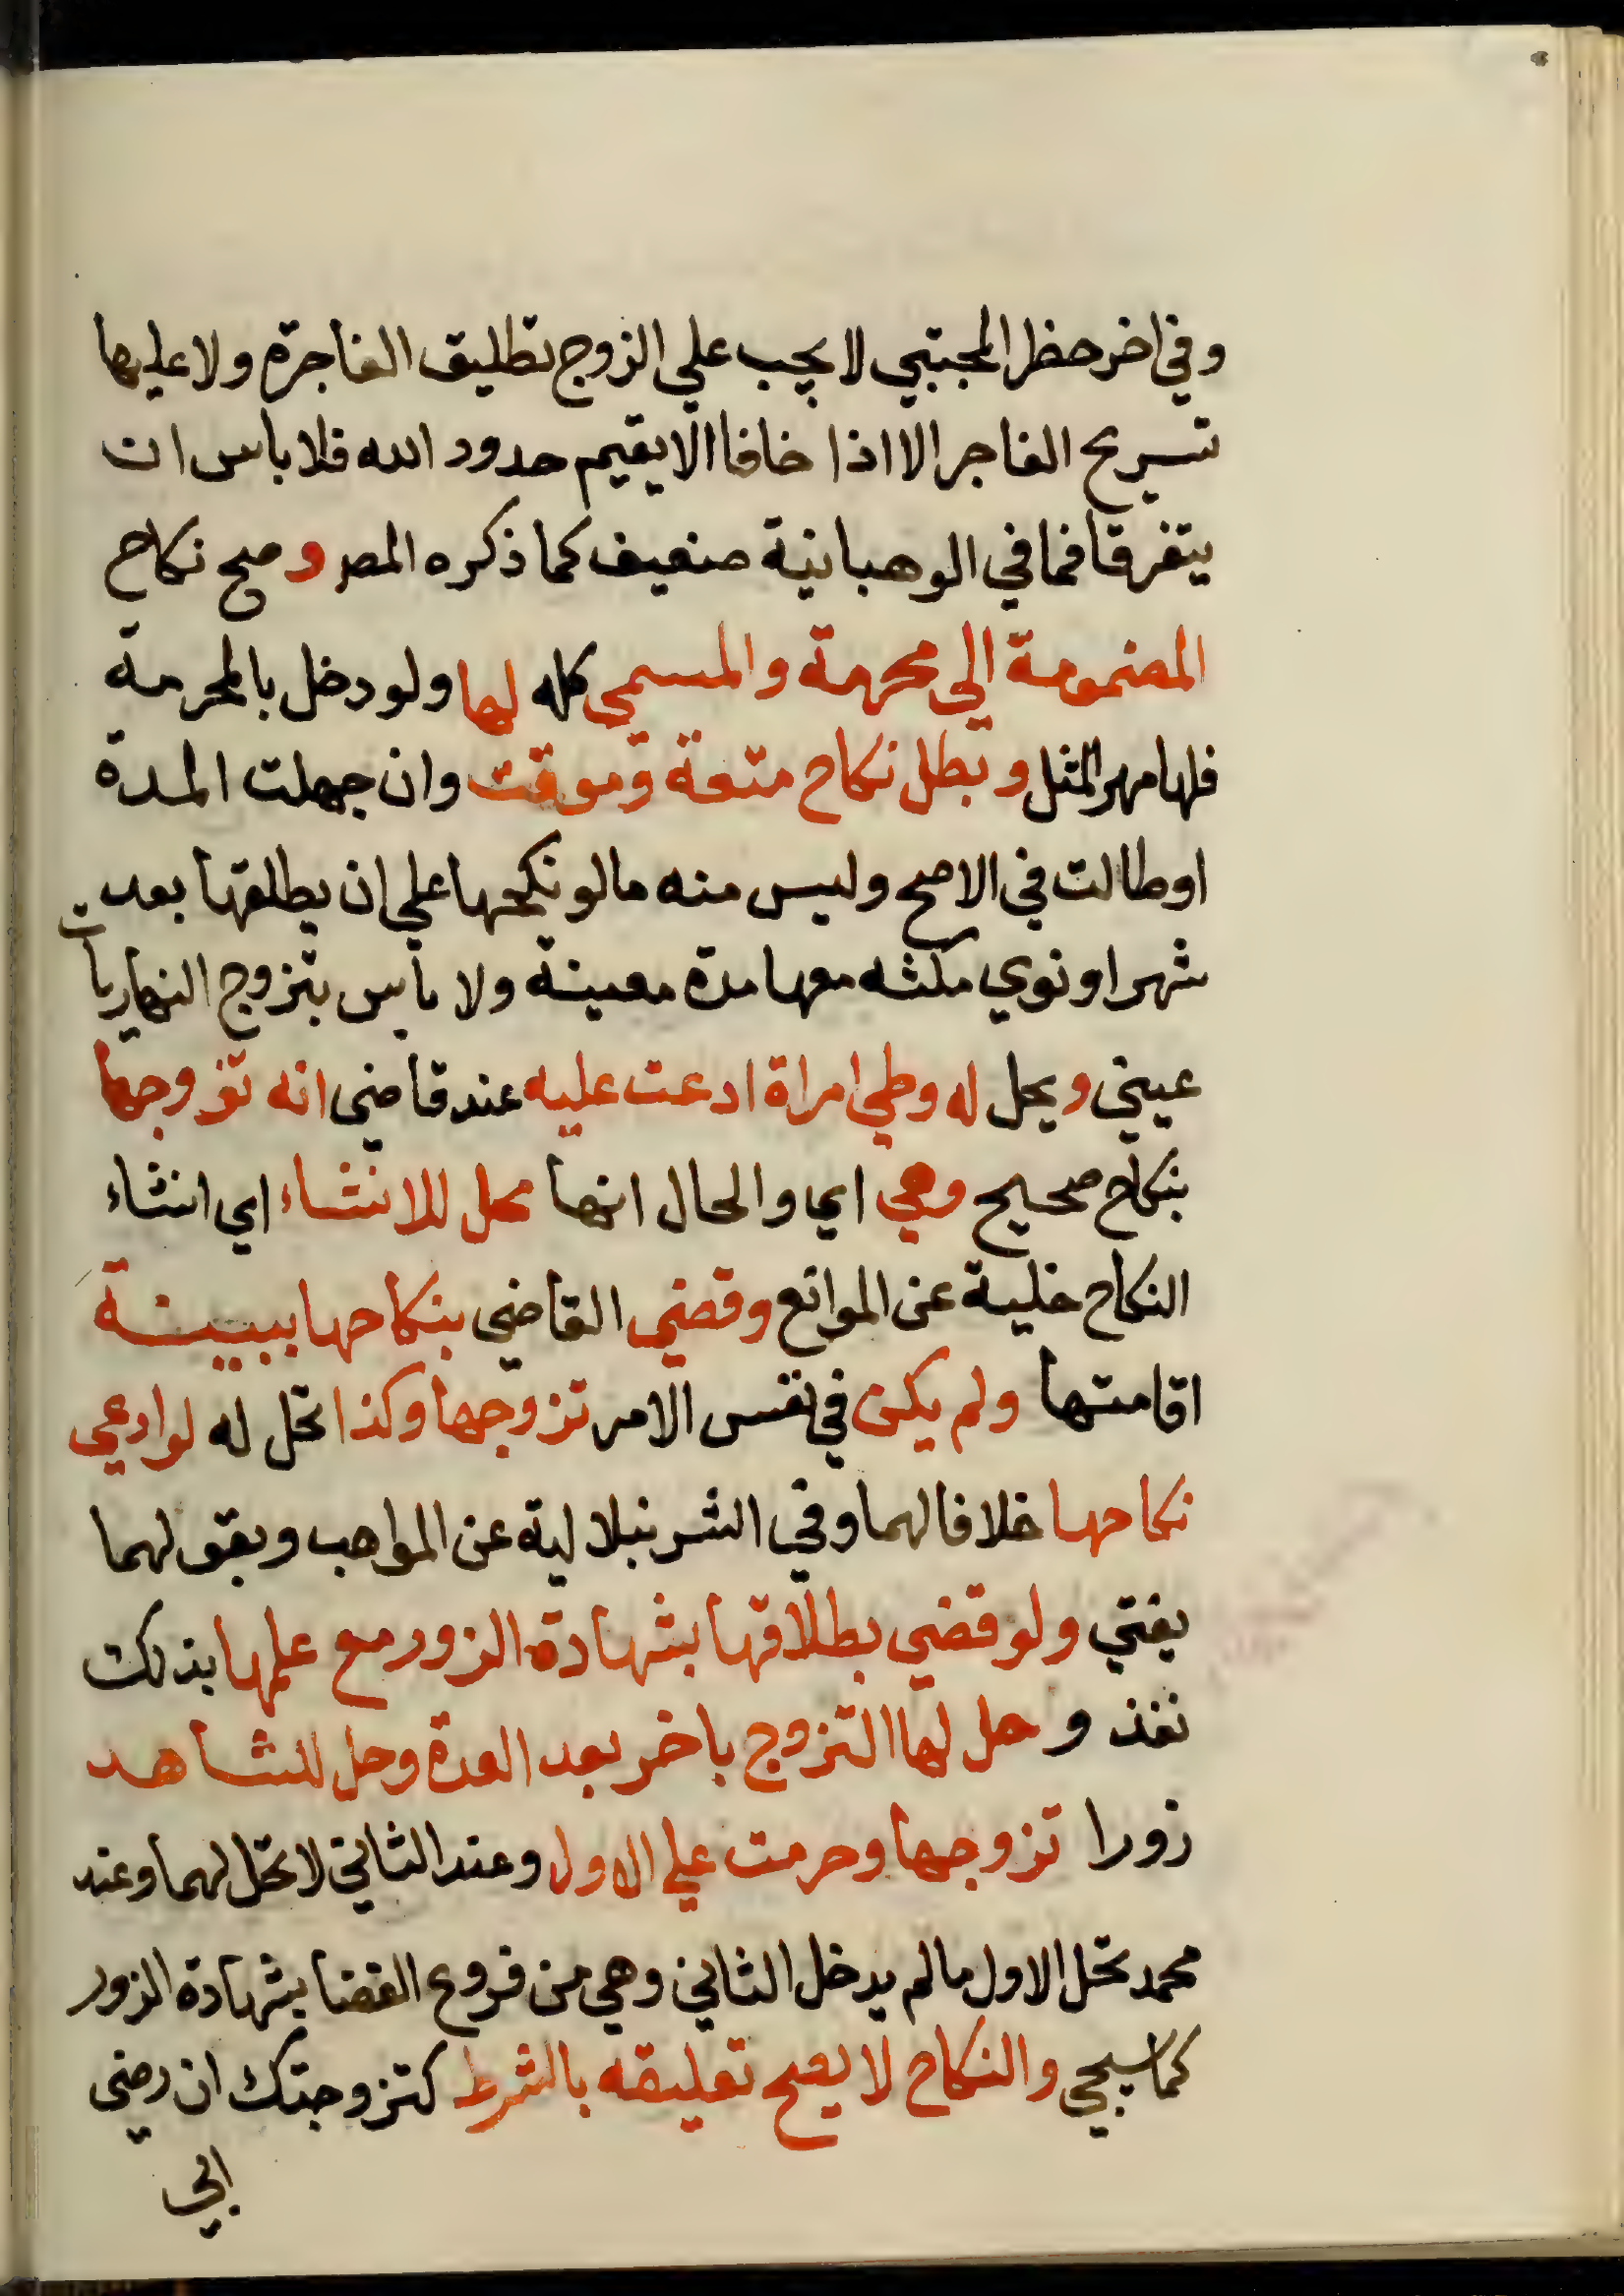 وفي اخر حظر المجتبي لا يجب علي الزوج تطليق الفاجرة ولا عليها
تسريح الفاجر الا اذا خافا الا يقيم حدود الله فلا باس ان
يتفرقا فما في الوهبانية ضعيف كما ذكره المص وصح نكاح
المضمومة الي محرمة والمسمي كله لها ولو دخل بالمحرمة
فلها مهر المثل وبطل نكاح متعة وموقت وان جهلت المدة
او طالت في الاصح وليس منه ما لو نكحها علي ان يطلقها بعد
شهر او نوي مكثه معها مدة معينة ولا باس بتزوج النهاريات
عيني ويحل له وطي امراة ادعت عليه عند قاضي انه تزوجها
بنكاح صحيح وهي اي والحال انها محل للانشاء اي انشاء
النكاح خلية عن الموانع وقضي القاضي بنكاحها ببينة
اقامتها ولم يكن في نفس الامر تزوجها وكذا تحل له لو ادعي
نكاحها خلافا لهما وفي الشرنبلالية عن المواهب وبقولهما
يفتي ولو قضي بطلاقها بشهادة الزور مع علمها بذلك
نفذ وحل لها التزوج باخر بعد العدة وحل للشاهد
زورا تزوجها وحرمت علي الاول وعند الثاني لا تحل لهما وعند
محمد تحل الاول ما لم يدخل الثاني وهي من فروع القضا بشهادة الزور
كما سيجي والنكاح لا يصح تعليقه بالشرط كتزوجتك ان رضي
ابي